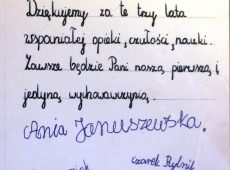 Dziękujemy za te trzy lata
wspaniałej opieki, czułości, nauki.
Zawsze będzie Pani naszą pierwszą i
jedyną wychowawczynią.
Ania Januszewska.
Czarek Rydnik